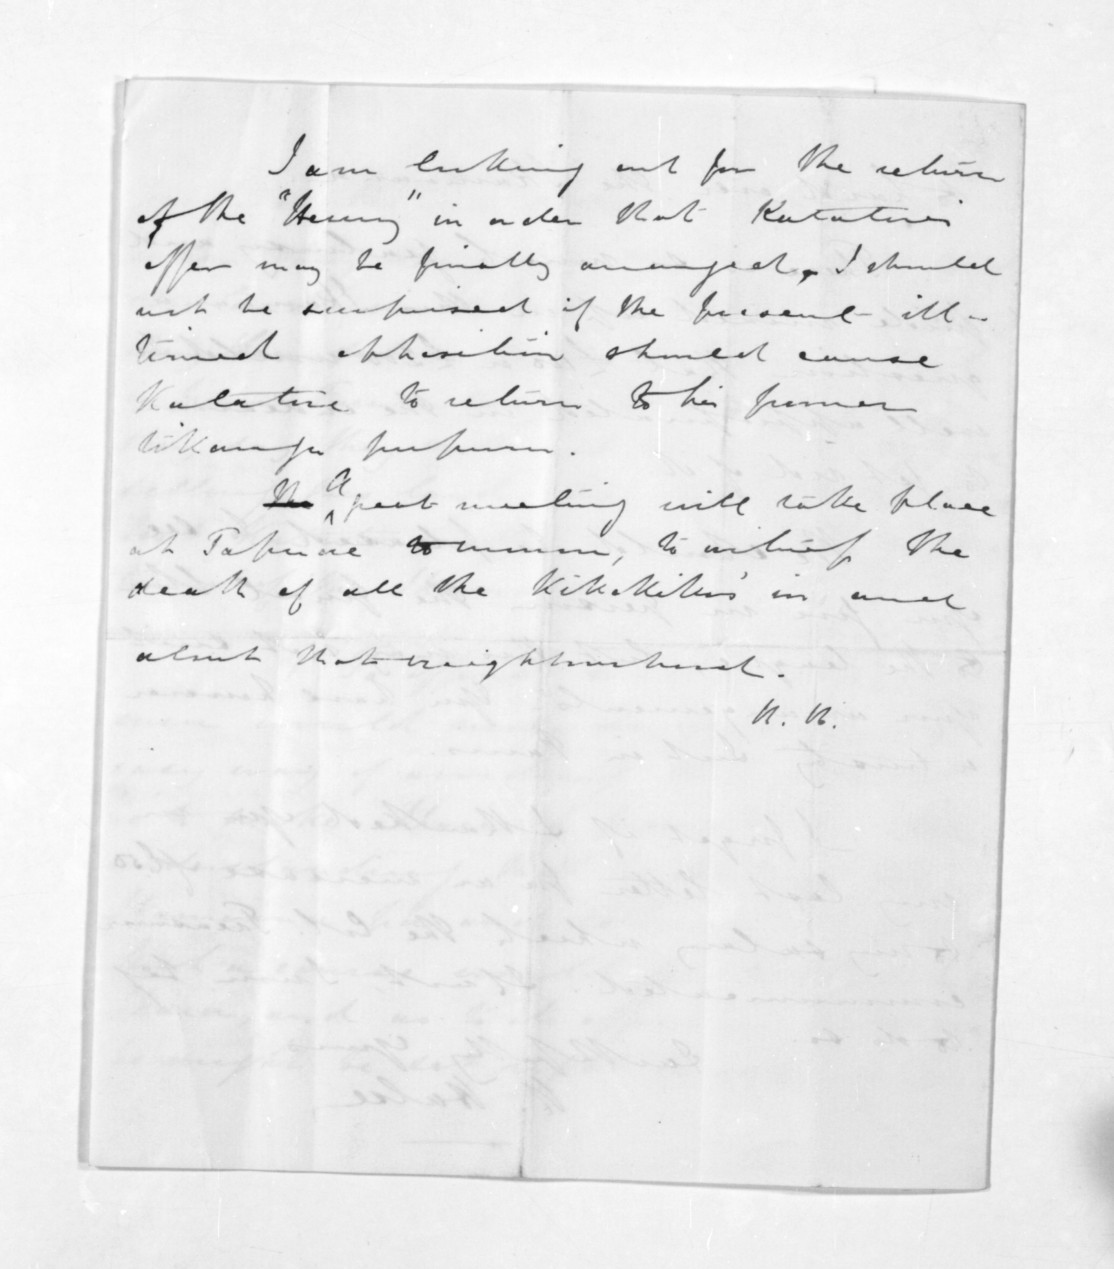 I am looking out for the return
of the "Henry" in order that Katatore's
offer may be finally arranged, I should
not be surprised if the present ill-
timed opposition should cause
Katatore to return to his former
tikanga purpose.
A great meeting will take place
at Tapuae tomorrow, to witness the
death of all the Kikokikos' in and
about that neighbourhood.
H. H.